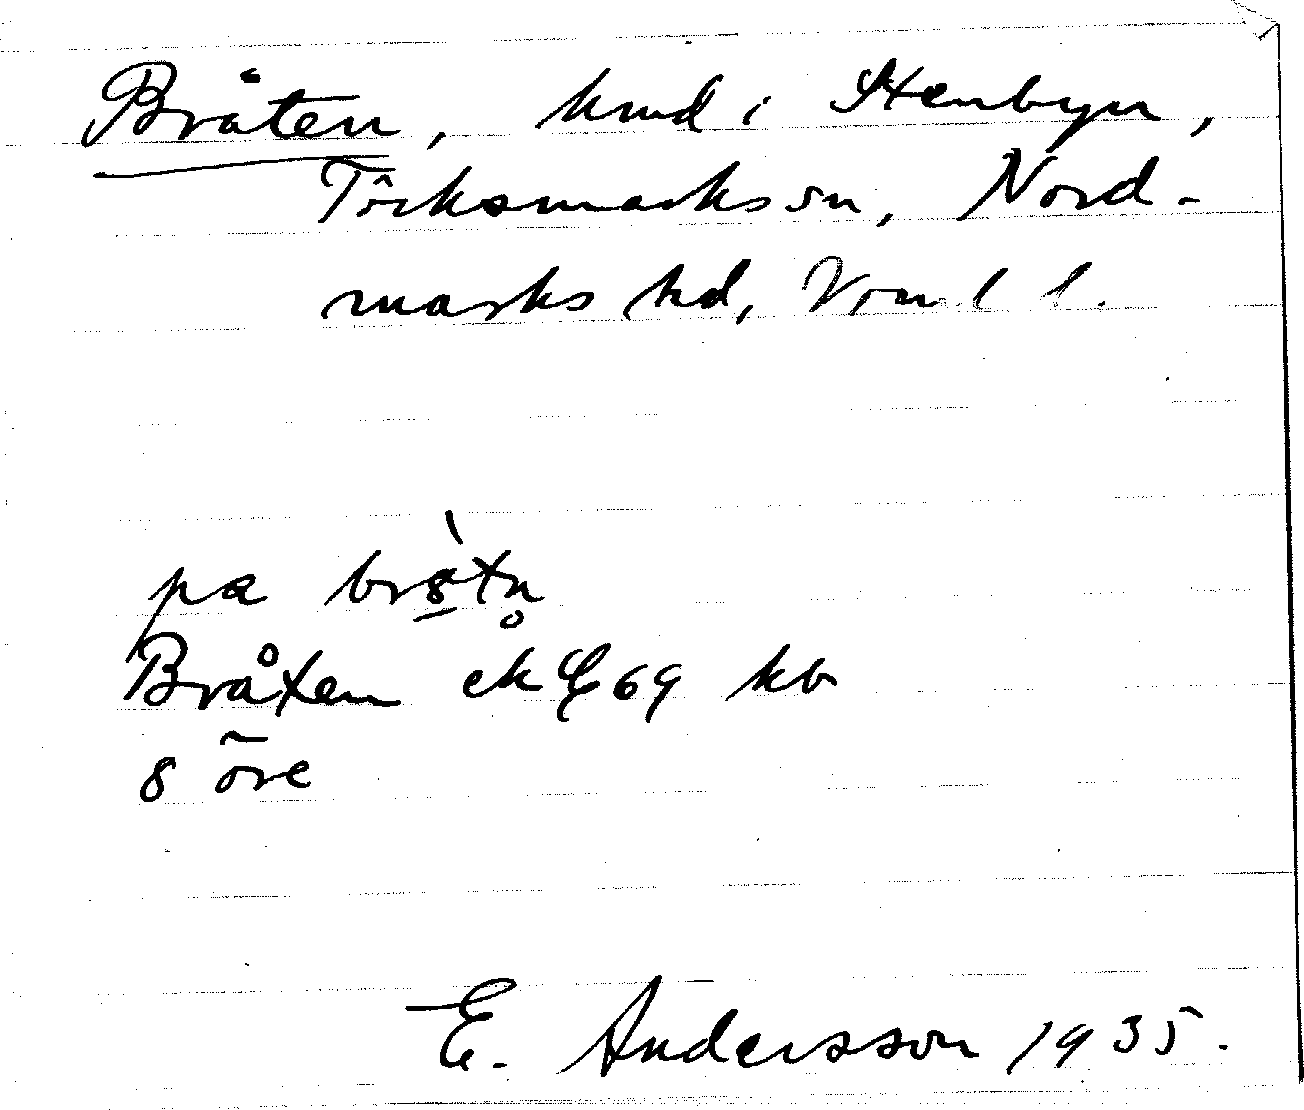 Bråten, hmd i Stenbyn,
Töcksmarks sn, Nord-
marks hd, Vrml l.
pa brå̀tn̥
Bråten ek 69 kb
8 öre
E. Andersson 1935.